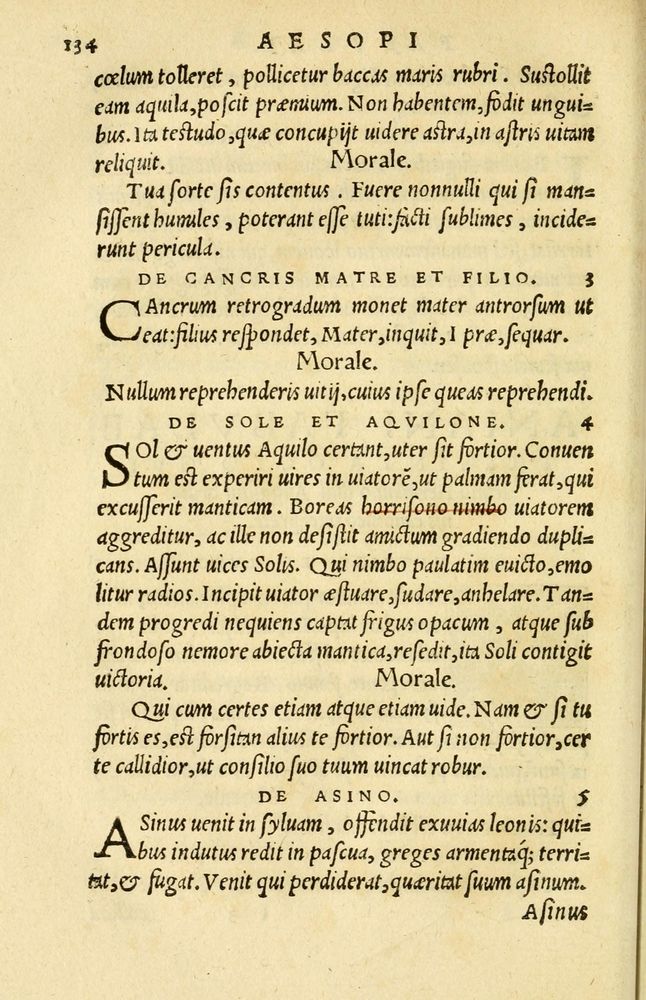 134 AESOPI
cœlum tolleret, pollicetur baccas maris rubri. Sustollit
eam aquila, poscit præmium. Non habentem, fodit ungui=
bus. Ita testudo, quæ concupijt uidere astra, in astris uitam
reliquit. Morale.
Tua sorte sis contentus. Fuere nonnulli qui si man=
sissent humiles, poterant esse tuti: facti sublimes, incide=
runt pericula.
DE CANCRIS MATRE ET FILIO. 3
CAncrum retrogradum monet mater antrorsum ut
eat: filius respondet, Mater, inquit, I præ, sequar.
Morale.
Nullum reprehenderis uitij, cuius ipse queas reprehendi.
DE SOLE ET AQVILONE. 4
SOl & uentus Aquilo certant, uter sit fortior. Conuen
tum est experiri uires in uiatorẽ, ut palmam ferat, qui
excusserit manticam. Boreas horrisono nimbo uiatorem
aggreditur, ac ille non desistit amictum gradiendo dupli=
cans. Assunt uices Solis. Qui nimbo paulatim euicto, emo
litur radios. Incipit uiator æstuare, sudare, anhelare. Tan=
dem progredi nequiens captat frigus opacum, atque sub
frondoso nemore abiecta mantica, resedit, ita Soli contigit
uictoria. Morale.
Qui cum certes etiam atque etiam uide. Nam & si tu
fortis es, est forsitan alius te fortior. Aut si non fortior, cer
te callidior, ut consilio suo tuum uincat robur.
DE ASINO. 5
ASinus uenit in syluam, offendit exuuias leonis: qui=
bus indutus redit in pascua, greges armentaq́; terri=
tat, & fugat. Venit qui perdiderat, quæritat suum asinum.
Asinus